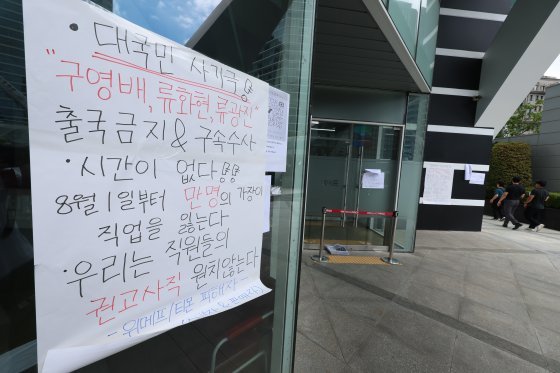 · 대국민 사기극 !
"구영배, 류화현, 류광진"
출국금지 & 구속수사
· 시간이 없다 !!
8월 1일부터 만명의 가장이
직업을 잃는다
· 우리는 직원들의
권고사직 원치않는다
- 위메프/티몬 피해자